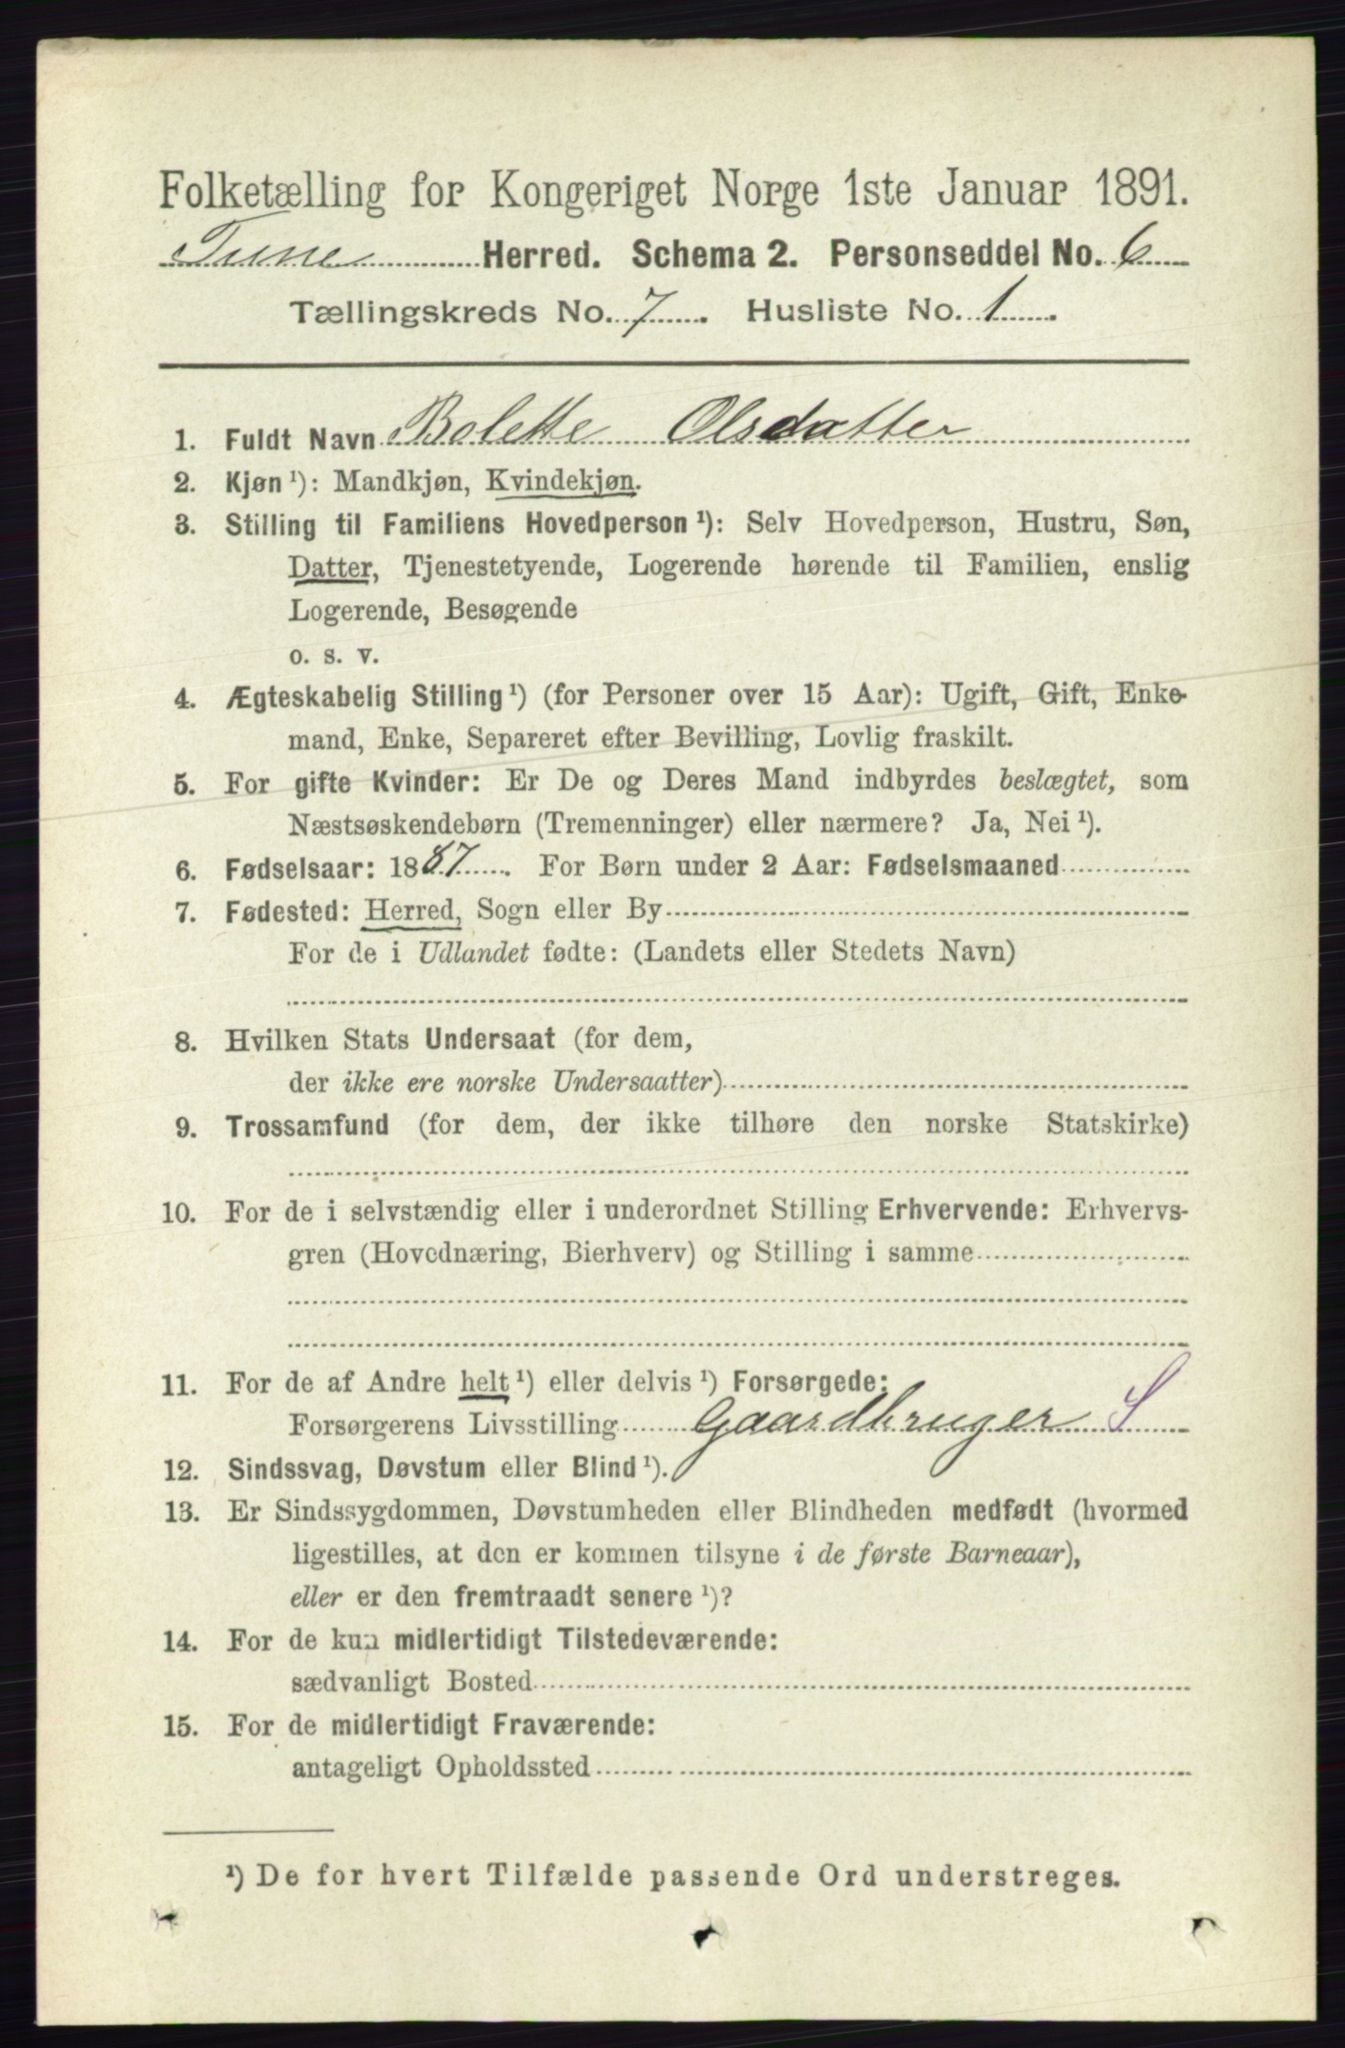 Folketælling for Kongeriget Norge 1ste Januar 1891.
Tune Herred. Schema 2. Personseddel No. 6
Tællingskreds No. 7. Husliste No. 1.
1. Fuldt Navn Bolette Olsdatter
2. Kjøn ¹): Mandkjøn, Kvindekjøn.
3. Stilling til Familiens Hovedperson ¹): Selv Hovedperson, Hustru, Søn,
Datter, Tjenestetyende, Logerende hørende til Familien, enslig
Logerende, Besøgende
o. s. v.
4. Ægteskabelig Stilling ¹) (for Personer over 15 Aar): Ugift, Gift, Enke-
mand, Enke, Separeret efter Bevilling, Lovlig fraskilt.
5. For gifte Kvinder: Er De og Deres Mand indbyrdes beslægtet, som
Næstsøskendebørn (Tremenninger) eller nærmere? Ja, Nei ¹).
6. Fødselsaar: 1887. For Børn under 2 Aar: Fødselsmaaned
7. Fødested: Herred, Sogn eller By
For de i Udlandet fødte: (Landets eller Stedets Navn)
8. Hvilken Stats Undersaat (for dem,
der ikke ere norske Undersaatter)
9. Trossamfund (for dem, der ikke tilhøre den norske Statskirke)
10. For de i selvstændig eller i underordnet Stilling Erhvervende: Erhvervs-
gren (Hovednæring, Bierhverv) og Stilling i samme
11. For de af Andre helt ¹) eller delvis ¹) Forsørgede:
Forsørgerens Livsstilling Gaardbruger S
12. Sindssvag, Døvstum eller Blind ¹).
13. Er Sindssygdommen, Døvstumheden eller Blindheden medfødt (hvormed
ligestilles, at den er kommen tilsyne i de første Barneaar),
eller er den fremtraadt senere ¹)?
14. For de kun midlertidigt Tilstedeværende:
sædvanligt Bosted
15. For de midlertidigt Fraværende:
antageligt Opholdssted
¹) De for hvert Tilfælde passende Ord understreges.